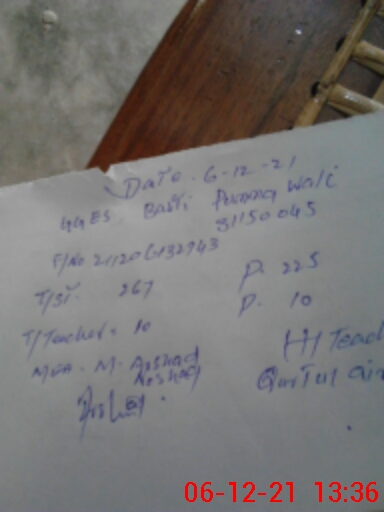 Date. 6-12-21
GGES. Basti Punnu Wali
31150045
F/No 211206132943
T/ST. 267 P. 225
T/Teacher = 10 P. 10
Mea. M. Arshad
Arshad
H/Teac
Qurtul Ain
06-12-21 13:36